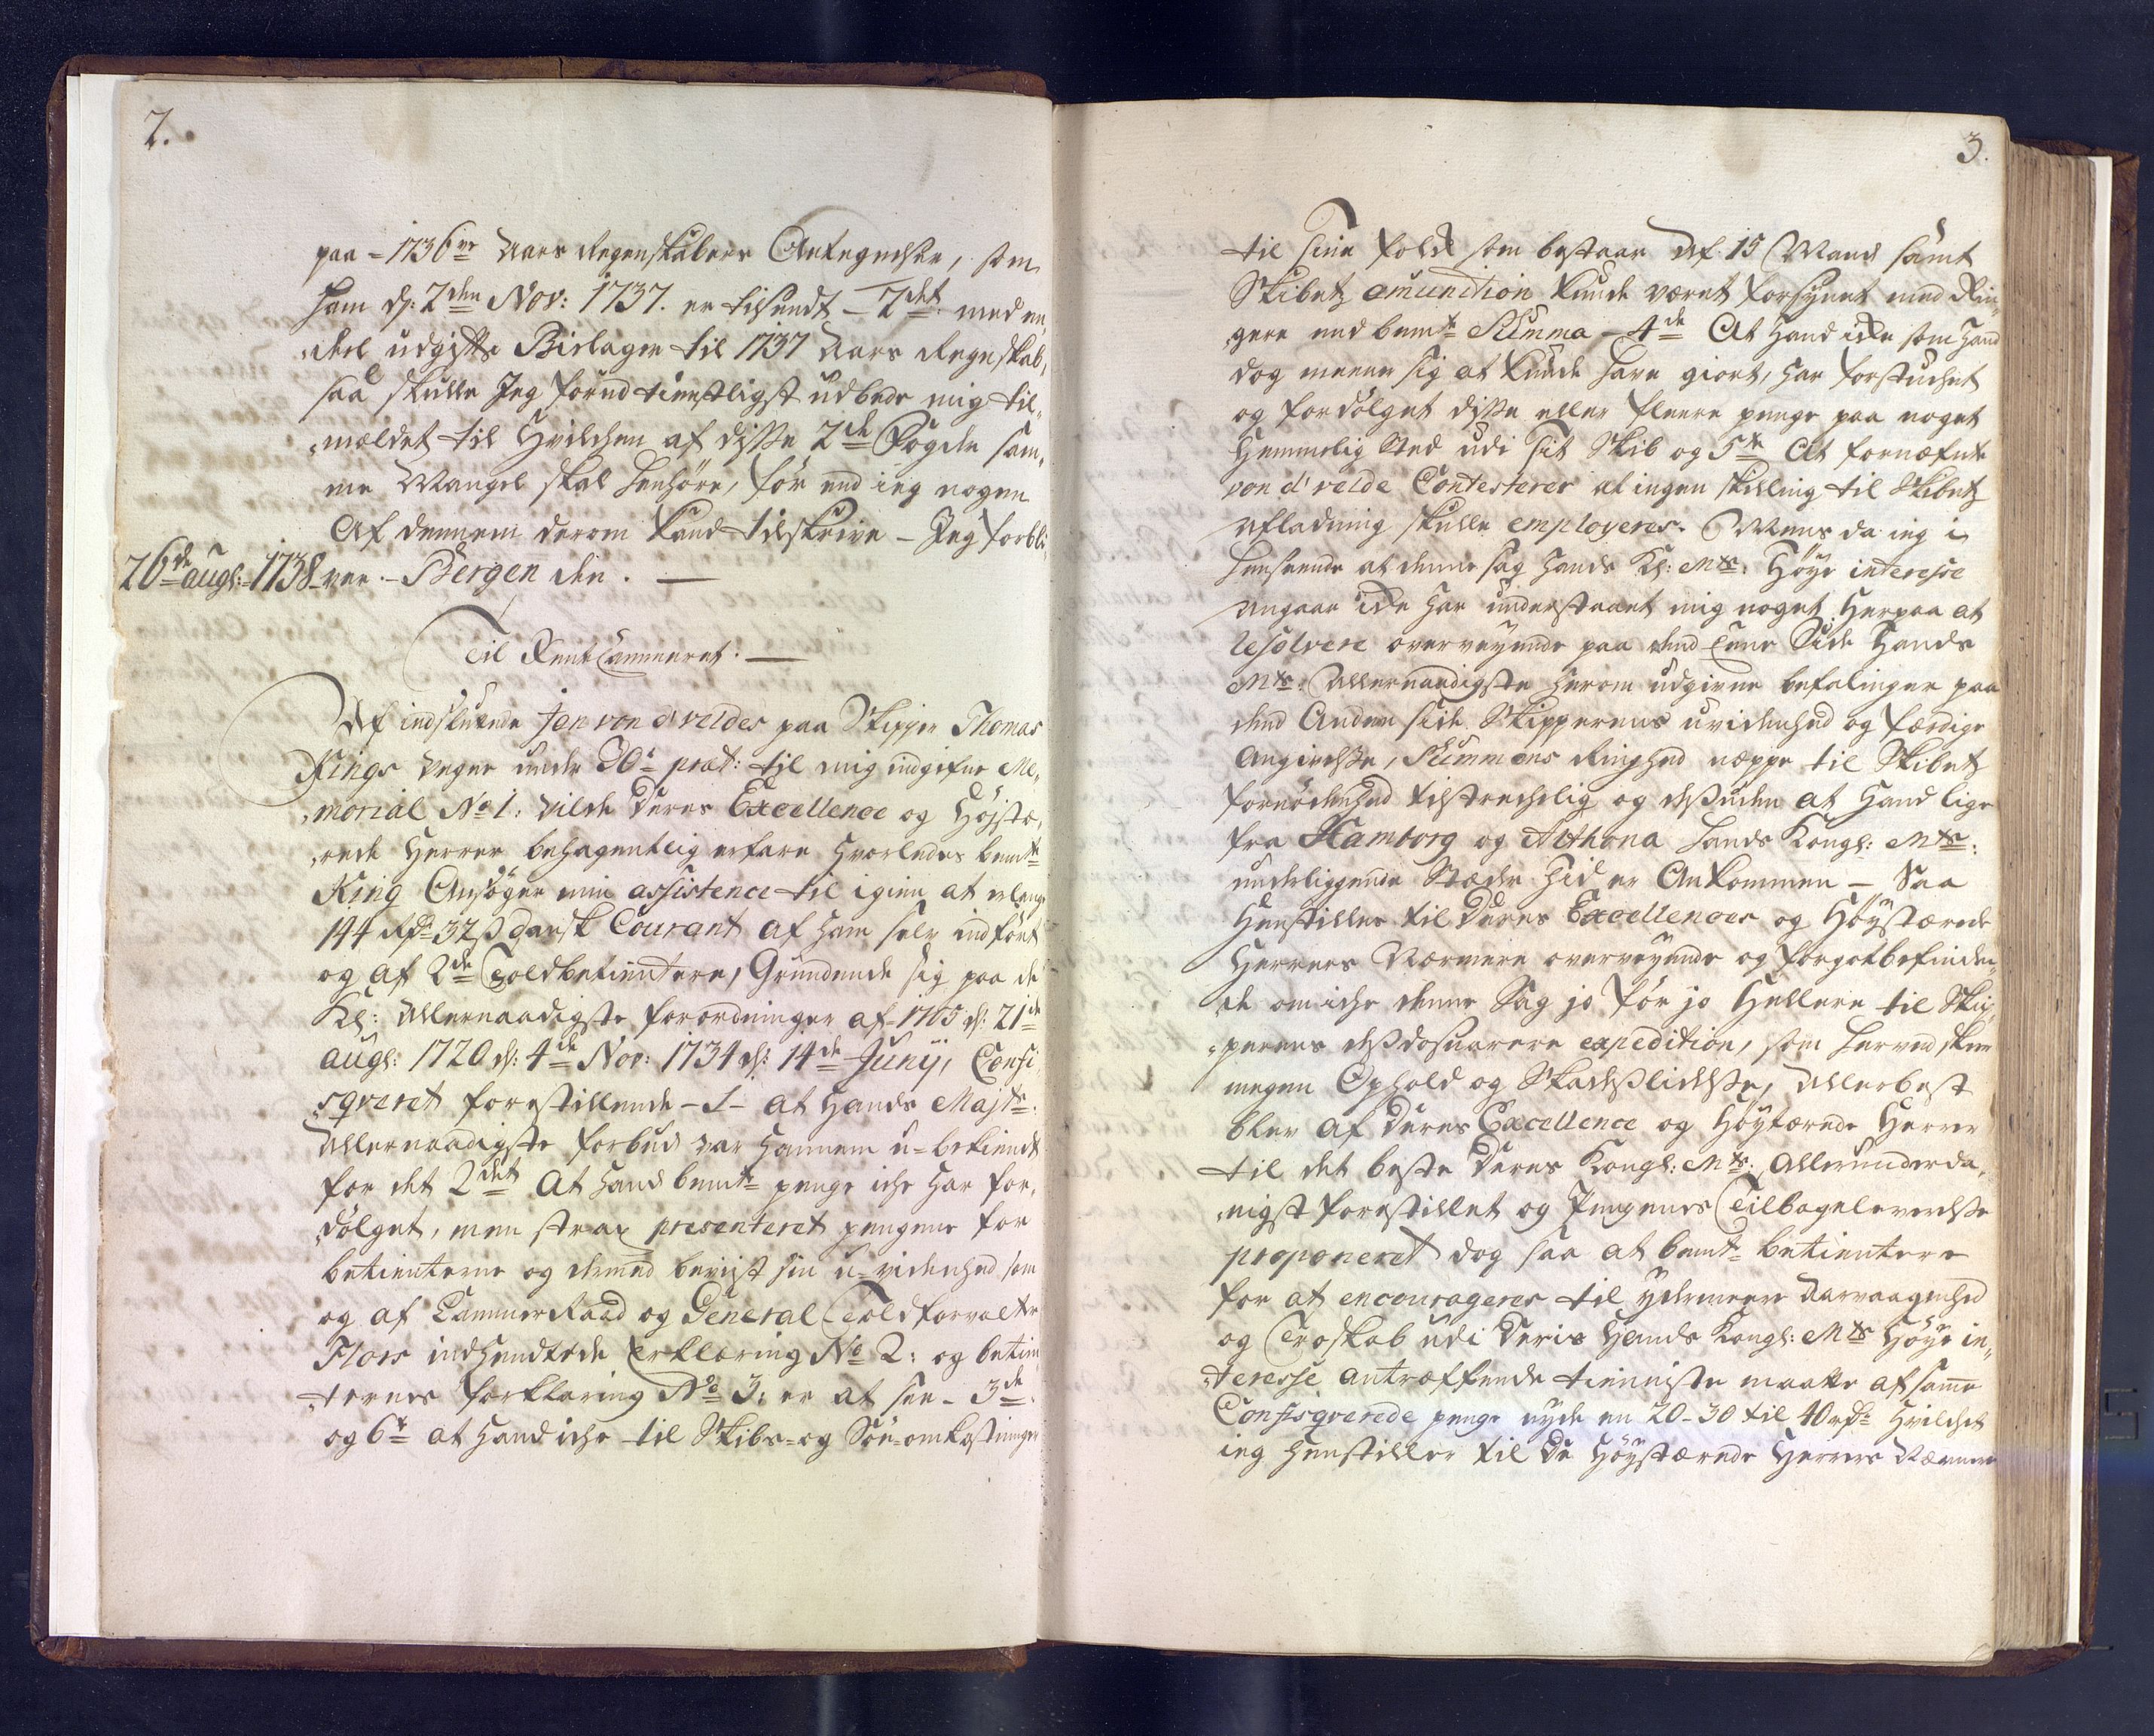 2.
paa - 1736 ve Aars Regenskabers Antegnelser, som
ham d: 2den Nov: 1737. er tilsendt - 2det med en
deel udgifts Bielager til 1737 Aars Regnskab,
saa skulle Jeg fornd tienstligst udbede mig til-
mældet til Hvilchen af disse 2de Fogder sam-
me Mangel skal henhöre, för end ieg nogen
Af dennem derom kand tilskrive - Jeg forbli-
26de augs: 1738 ver. - Bergen den. -
Til RenteCammeret. -
Af indsluttende Jan von d' veldes paa Skipper Thomas
Kings vegne under 30te præt: til mig indgifne Me-
morial No 1. vilde Deres Excellence og Højstæ-
rede Herrer behagentlig erfare hvorledes bemte
King Ansöger min assistence til igien at erlange
144 Rdr 32 ß dansk Courant af ham selv indfört
og af 2de Toldbetientere, Grundende sig paa de
Kl: Allernaadigste forordninger af 1705 d: 21de
augs: 1720 d: 4de Nov: 1734 d: 14de Junij, Confi-
sqveret forestillende - 1 - at Hands Majts:
Allernaadigste forbud var hannem u-bekiendt
for det 2det At hand bemte penge iche har for-
dölget, men strax presenteret pengene for
betienterne og dermed beviist sin u-videnhed som
og af CammerRaad og General Toldforvalter
Flors indhendtede Erklæring No 2: og betien-
ternes forklaring No 3: er at see - 3de
og 6te at hand iche til Skibs- og Söe-omkostninger
3.
til sine folk som bestaar Af 15 Mand samt
Skibetz amunition kunde været forsynet med Rin-
gere end bemte Summa - 4de At hand icke som hand
dog meener sig at kunde have giort, har forstuchet
og fordölget disse eller fleere penge paa noget
Hemmelig Sted udi sit Skib og 5te At fornæfnte
von d' velde Contesterer at ingen skilling til Skibetz
Afladning skulle employeres. Mens da ieg i
henseende at denne sag Hands Kl: Mts: Höye interesse
Angaar icke har understaaet mig noget herpaa at
resolvere overveyende paa dend Eene Side Hands
Mts: Allernaadigste herom udgivne befalinger paa
dend Anden side Skipperens uvidenhed og færdige
Angivelse, Summens Ringhed næppe til Skibetz
fornödenhed tilstrechelig og desuden at hand lige
fra Hamborg og Althona hands Kongl: Mts:
underliggende Stæder hid er Ankommen - Saa
Henstilles til Deres Excellences og Höystærede
Herrers Nærmere overveyende og forgotbefinden-
de om iche denne Sag jo för jo Hellere til Skip-
perens expedition, som herved skeer
megen Ophold og Skadeslidelse, Allerbest
blev af Deres Excellence og höytærede Herrer
til det beste Deres Kongl: Mts: Allerunderda-
nigst forestillet og Pengenes Tilbageleverelse
proponeret dog saa at bemte betientere
for at encourageres til ydermeere Aarvaagenhed
og Troskab udi Deris Hands Kongl: Mts Höye in-
teresse antræffende tienniste maatte af samme
Confisqverede penge nyde en 20-30 til 40 rdr Hvilchet
ieg henstiller til De Höystærede Herrers Nærmere